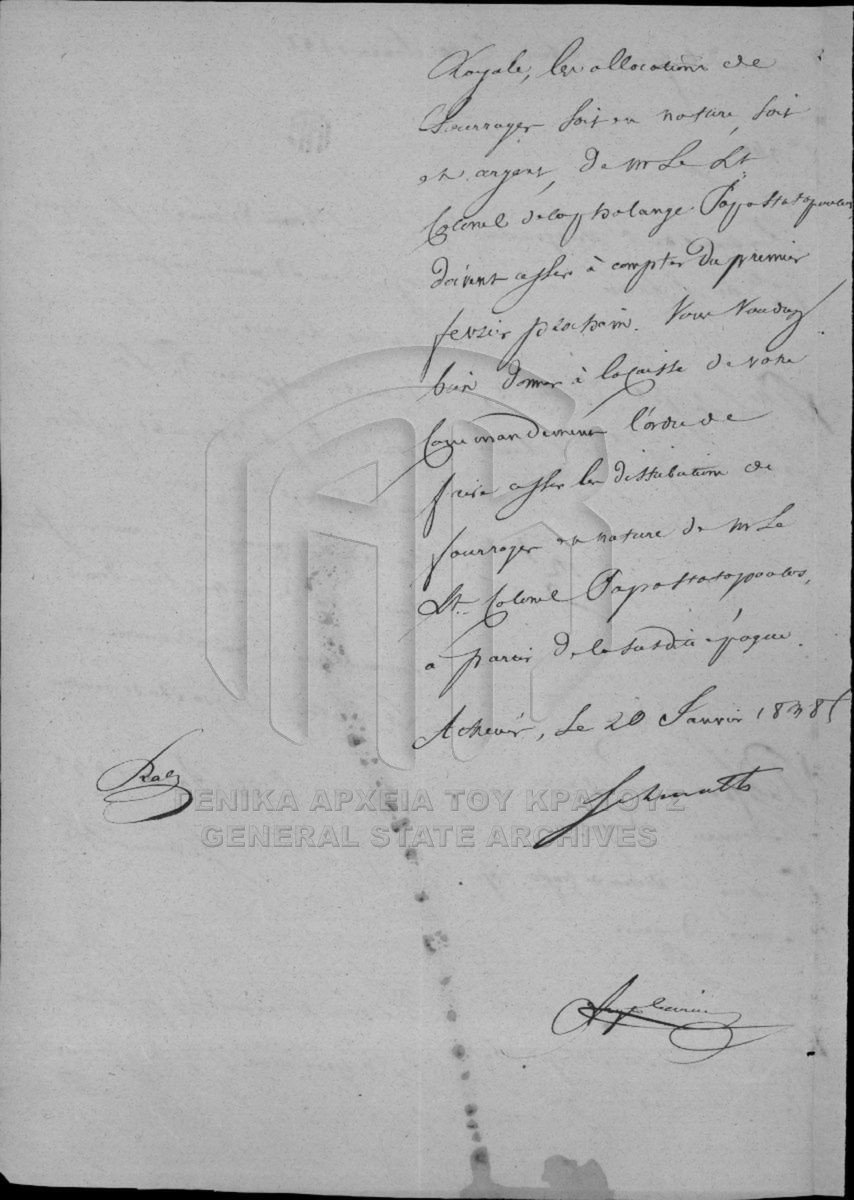 Royale, les allocations de
fourrages soit en nature, soit
en argent, de Mr Le Lt
Colonel de la phalange Papostatopoulos,
doivent cesser à compter du premier
fevrier prochain. Vous voudrez
bien donner à la Caisse de votre
Commandement l'ordre de
faire cesser les distributions de
fourrages en nature de Mr Le
Lt. Colonel Papostatopoulos,
à partir de la susdite époque.
Athenes, Le 20 Janvier 1838
Schmaltz
ΓΕΝΙΚΑ ΑΡΧΕΙΑ ΤΟΥ ΚΡΑΤΟΥΣ
GENERAL STATE ARCHIVES